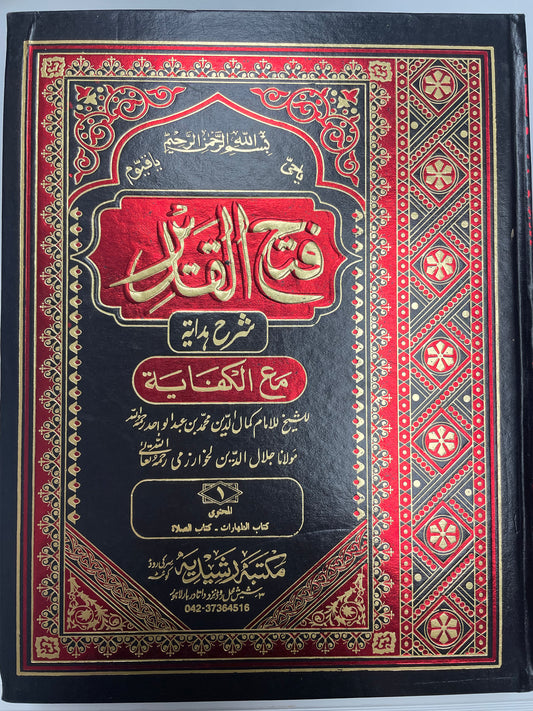 بسم الله الرحمن الرحيم
ياحيّ
ياقيّوم
فتح القدير
شرح هداية
مع الكفاية
للشيخ للامام كمال الدين محمد بن عبد الواحد رحمه الله
مولانا جلال الدين الخوارزمى رحمه الله تعالى
١
المحتوى
كتاب الطهارات - كتاب الصلاة
مكتبہ رشیدیہ
سرکی روڈ کوئٹہ
شیش محل روڈ نزد داتا دربار لاہور
042-37364516